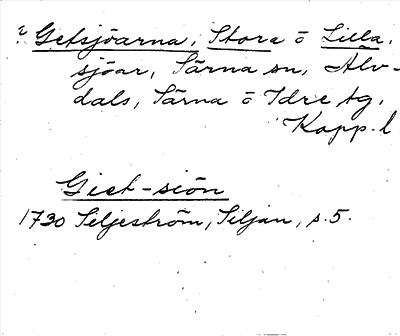 ? Getsjöarna, Stora o Lilla,
sjöar, Särna sn, Älv-
dals, Särna o Idre tg,
Kopp. l
Giet-siön
1730 Seljeström, Siljan, s. 5.